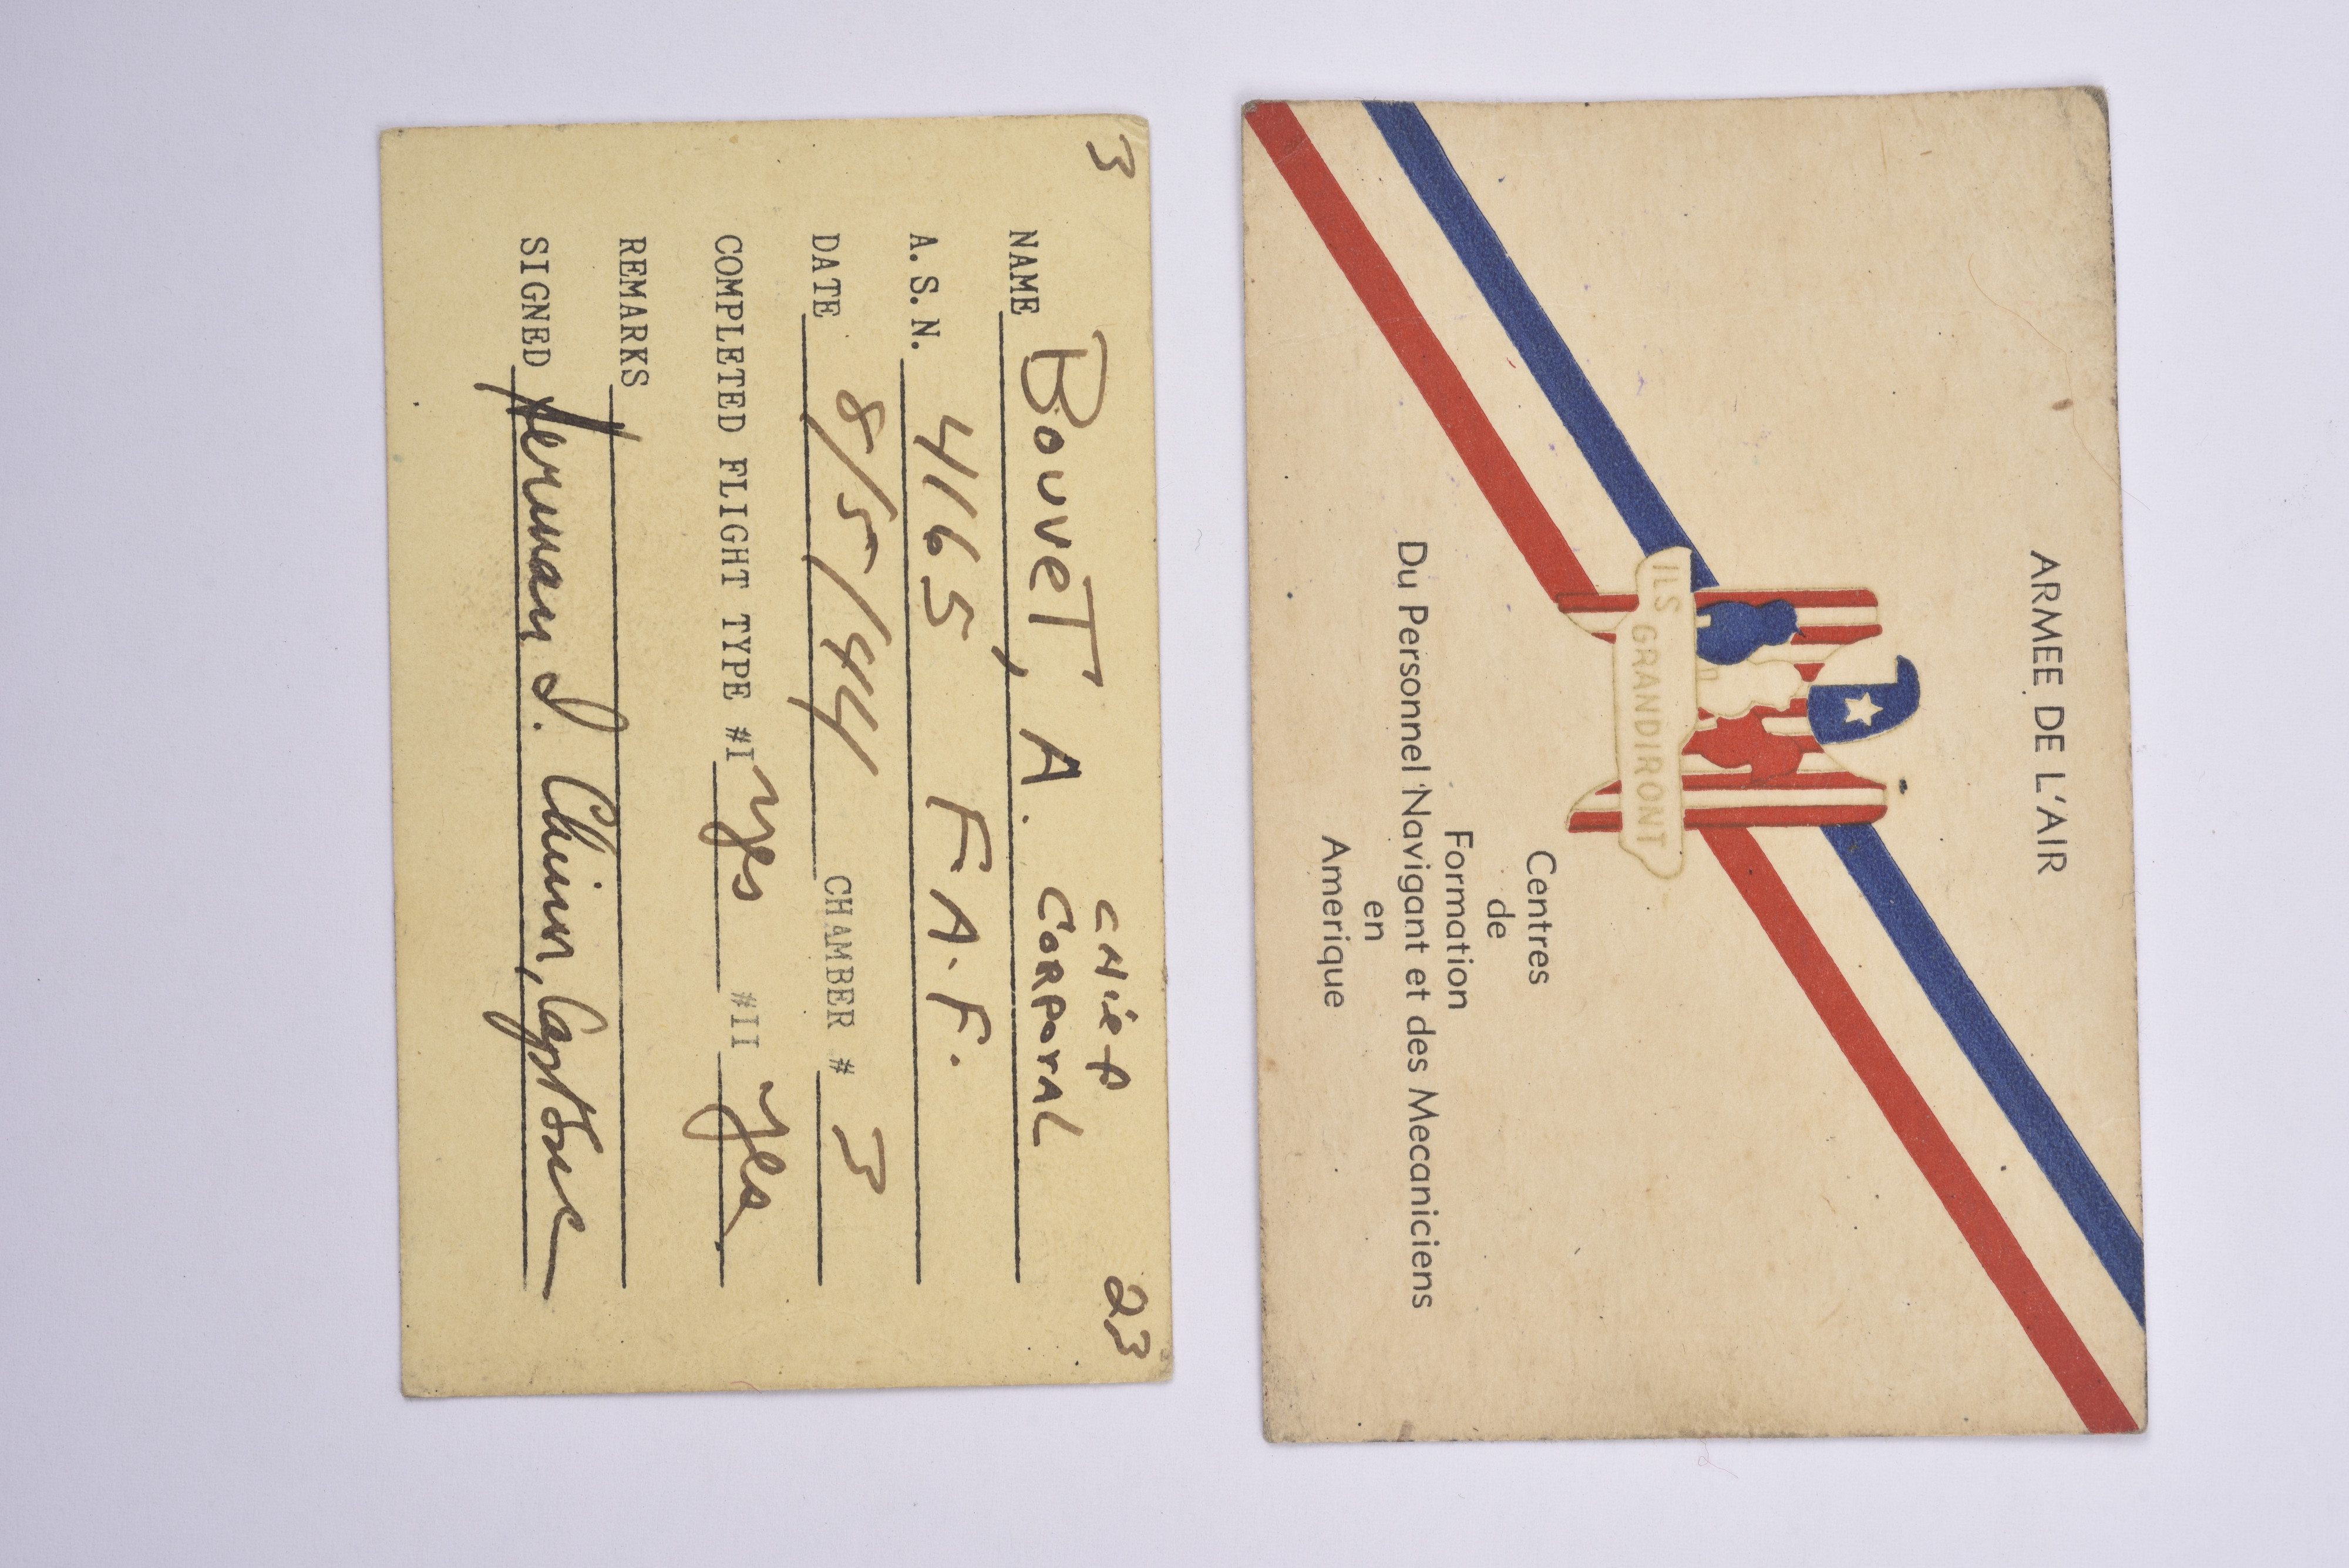 3
23
CHIEF
NAME BOUVET, A. CORPORAL
A.S.N. 4165 F.A.F.
DATE 8/5/44 CHAMBER # 3
COMPLETED FLIGHT TYPE #I yes #II yes
REMARKS
SIGNED Herman S. Chinn, Capt
ARMEE DE L'AIR
ILS GRANDIRONT
Centres
de
Formation
Du Personnel Navigant et des Mecaniciens
en
Amerique